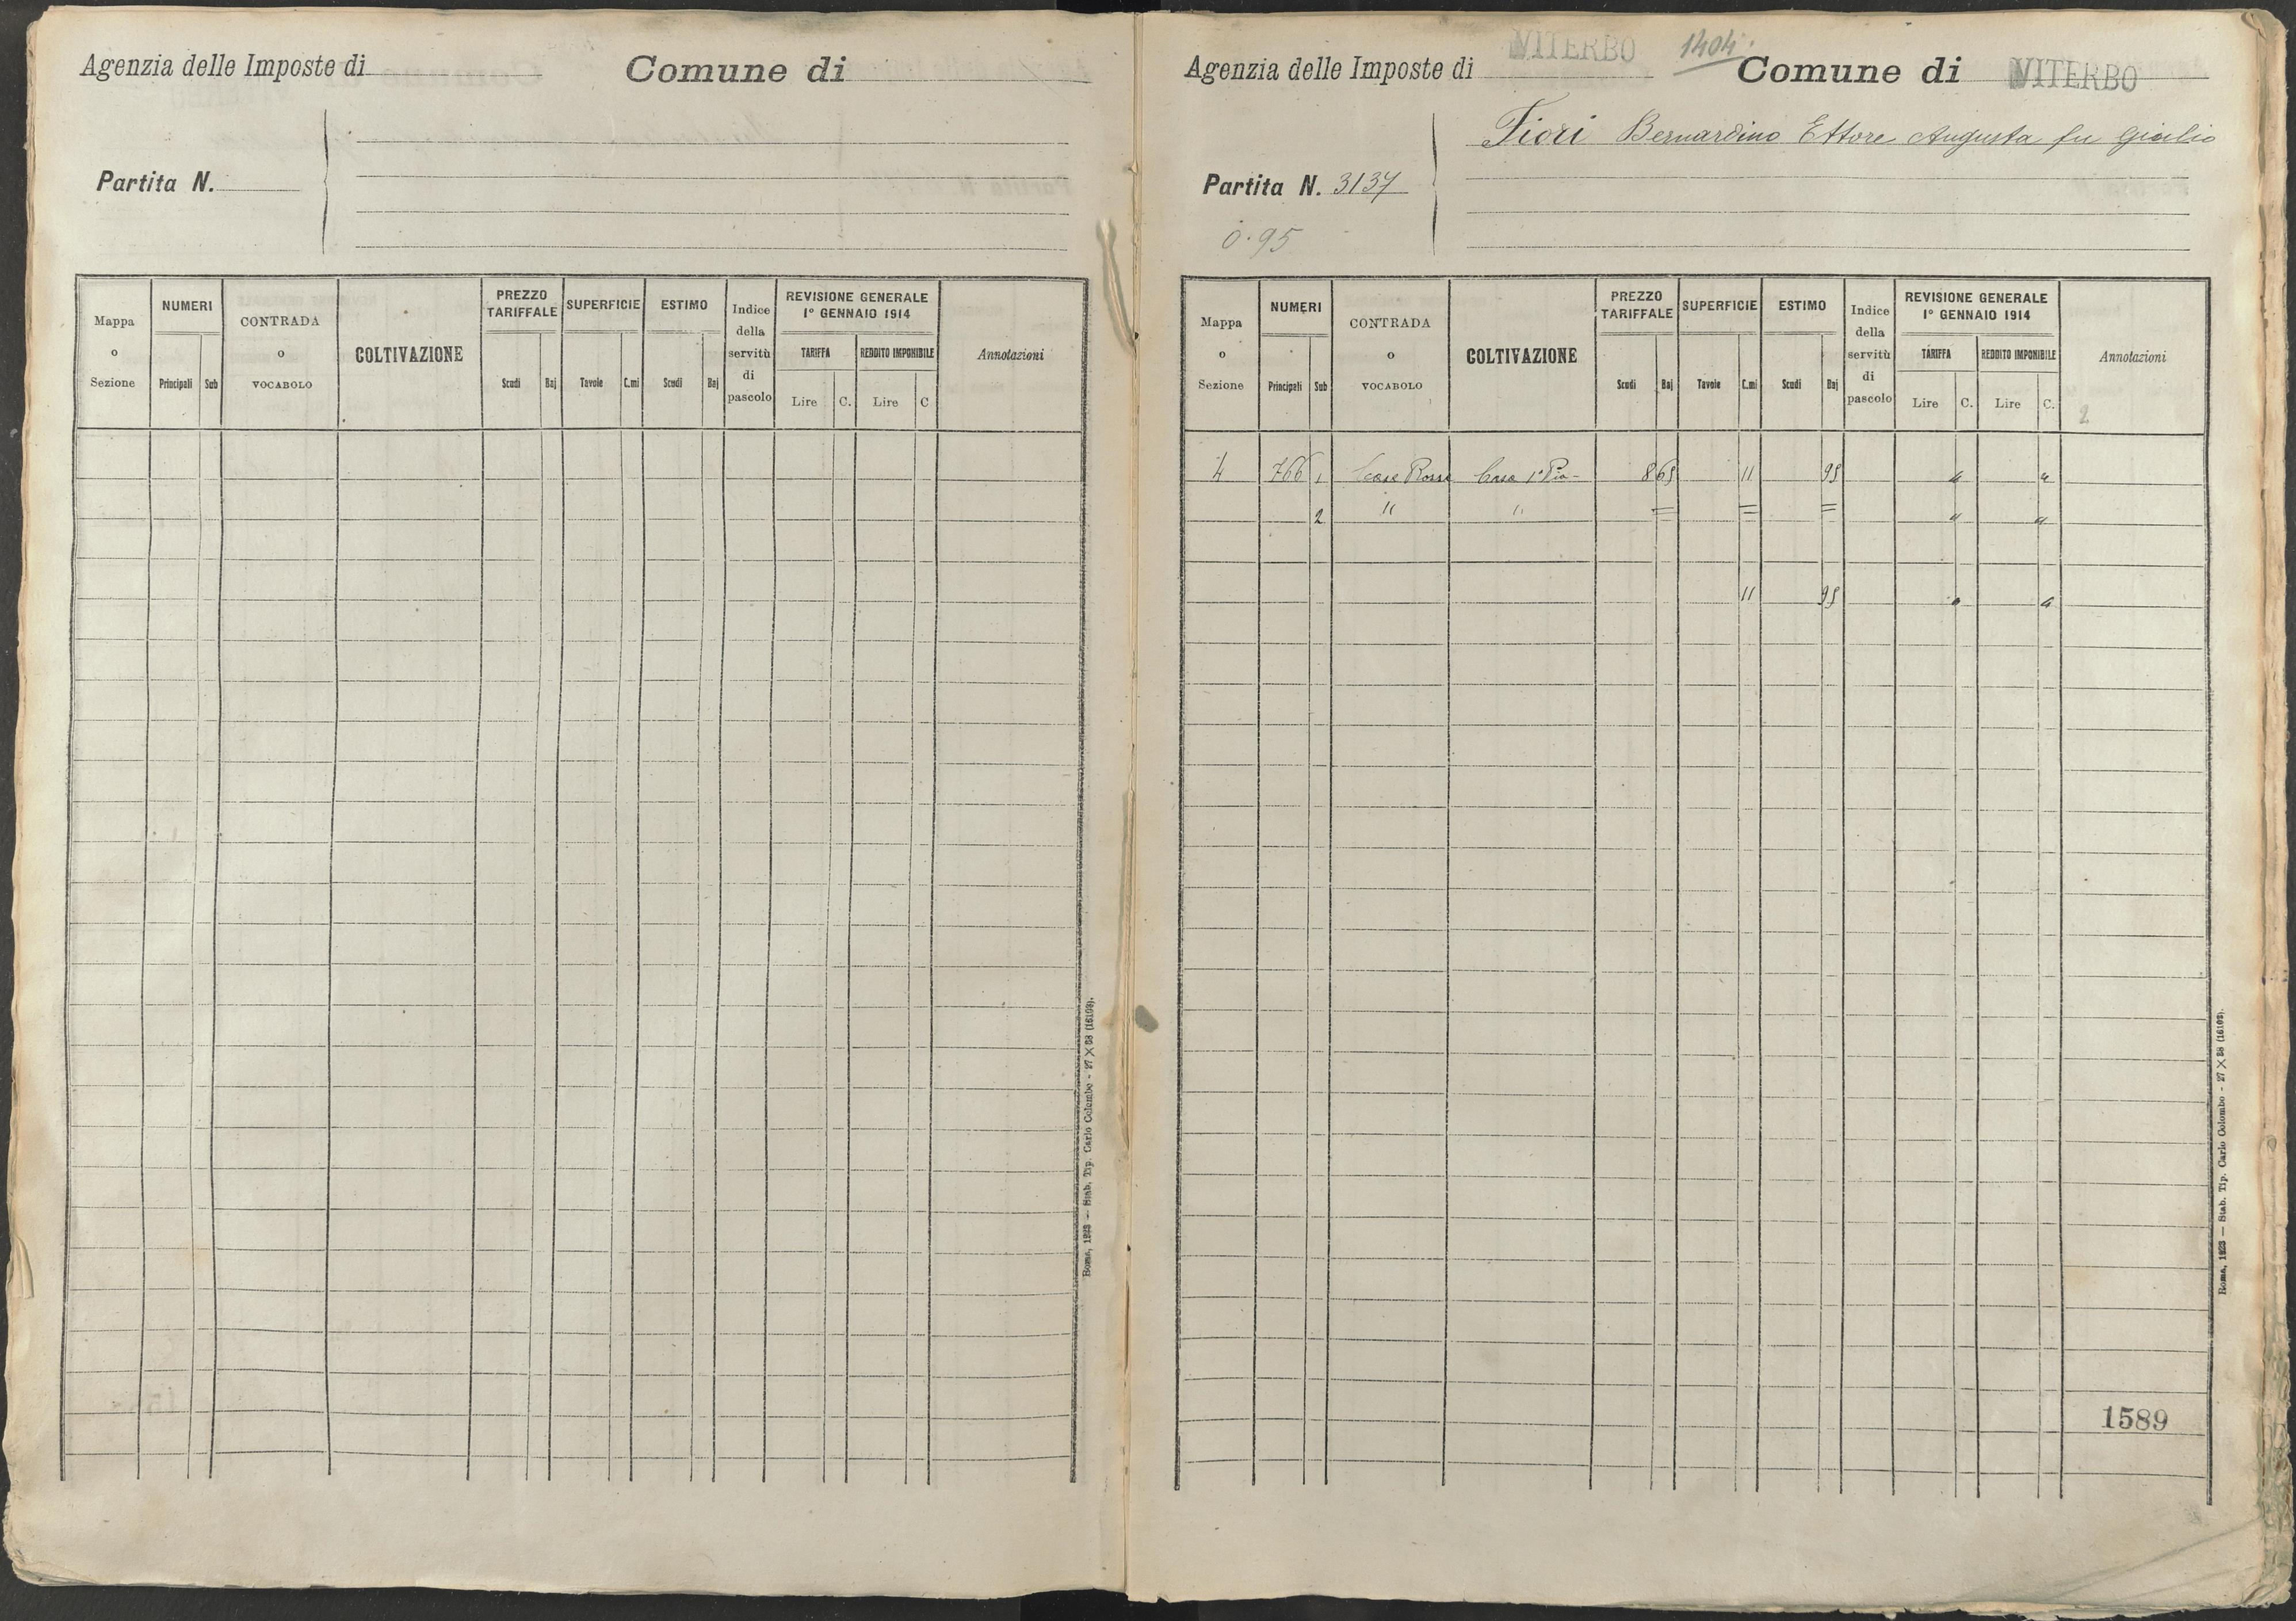 Agenzia delle Imposte di
Comune di
Partita N.
Mappa o Sezione
NUMERI
Principali Sub
CONTRADA o VOCABOLO
COLTIVAZIONE
PREZZO TARIFFALE
Scudi Baj
SUPERFICIE
Tavole C.mi
ESTIMO
Scudi Baj
Indice della servitù di pascolo
REVISIONE GENERALE
1° GENNAIO 1914
TARIFFA
Lire C.
REDDITO IMPONIBILE
Lire C
Annotazioni
Roma, 1923 — Stab. Tip. Carlo Colombo - 27 X 38 (16193).
Agenzia delle Imposte di VITERBO
1404.
Comune di VITERBO
Fiori Bernardino Ettore Augusta fu Giulio
Partita N. 3137
0.95
Mappa o Sezione
NUMERI
Principali Sub
CONTRADA o VOCABOLO
COLTIVAZIONE
PREZZO TARIFFALE
Scudi Baj
SUPERFICIE
Tavole C.mi
ESTIMO
Scudi Baj
Indice della servitù di pascolo
REVISIONE GENERALE
1° GENNAIO 1914
TARIFFA
Lire C.
REDDITO IMPONIBILE
Lire C.
Annotazioni
2
4 766 1 Case Rosse Casa 1° 8 65 11 95 " "
2 " " = = = " "
11 95 " "
1589
Roma, 1923 — Stab. Tip. Carlo Colombo - 27 X 38 (16193).